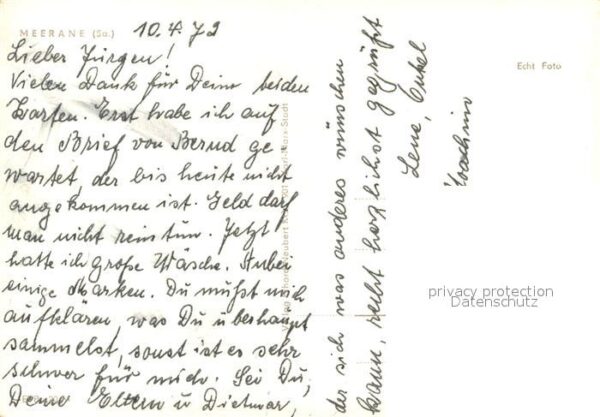 MEERANE (Sa.) 10.4.72
Lieber Jürgen!
Vielen Dank für Deine beiden
Karten. Erst habe ich auf
den Brief von Bernd ge
wartet, der bis heute nicht
angekommen ist. Geld darf
man nicht reintun. Jetzt
hatte ich große Wäsche. Anbei
einige Marken. Du mußt mich
aufklären, was Du überhaupt
sammelst, sonst ist es sehr
schwer für mich. Sei Du,
Deine Eltern u Dietmar,
der sich was anderes wünschen
kann, recht herzlichst gegrüßt
Lene, Onkel
Joachim
Echt Foto
Karl-Marx-Stadt
privacy protection
Datenschutz